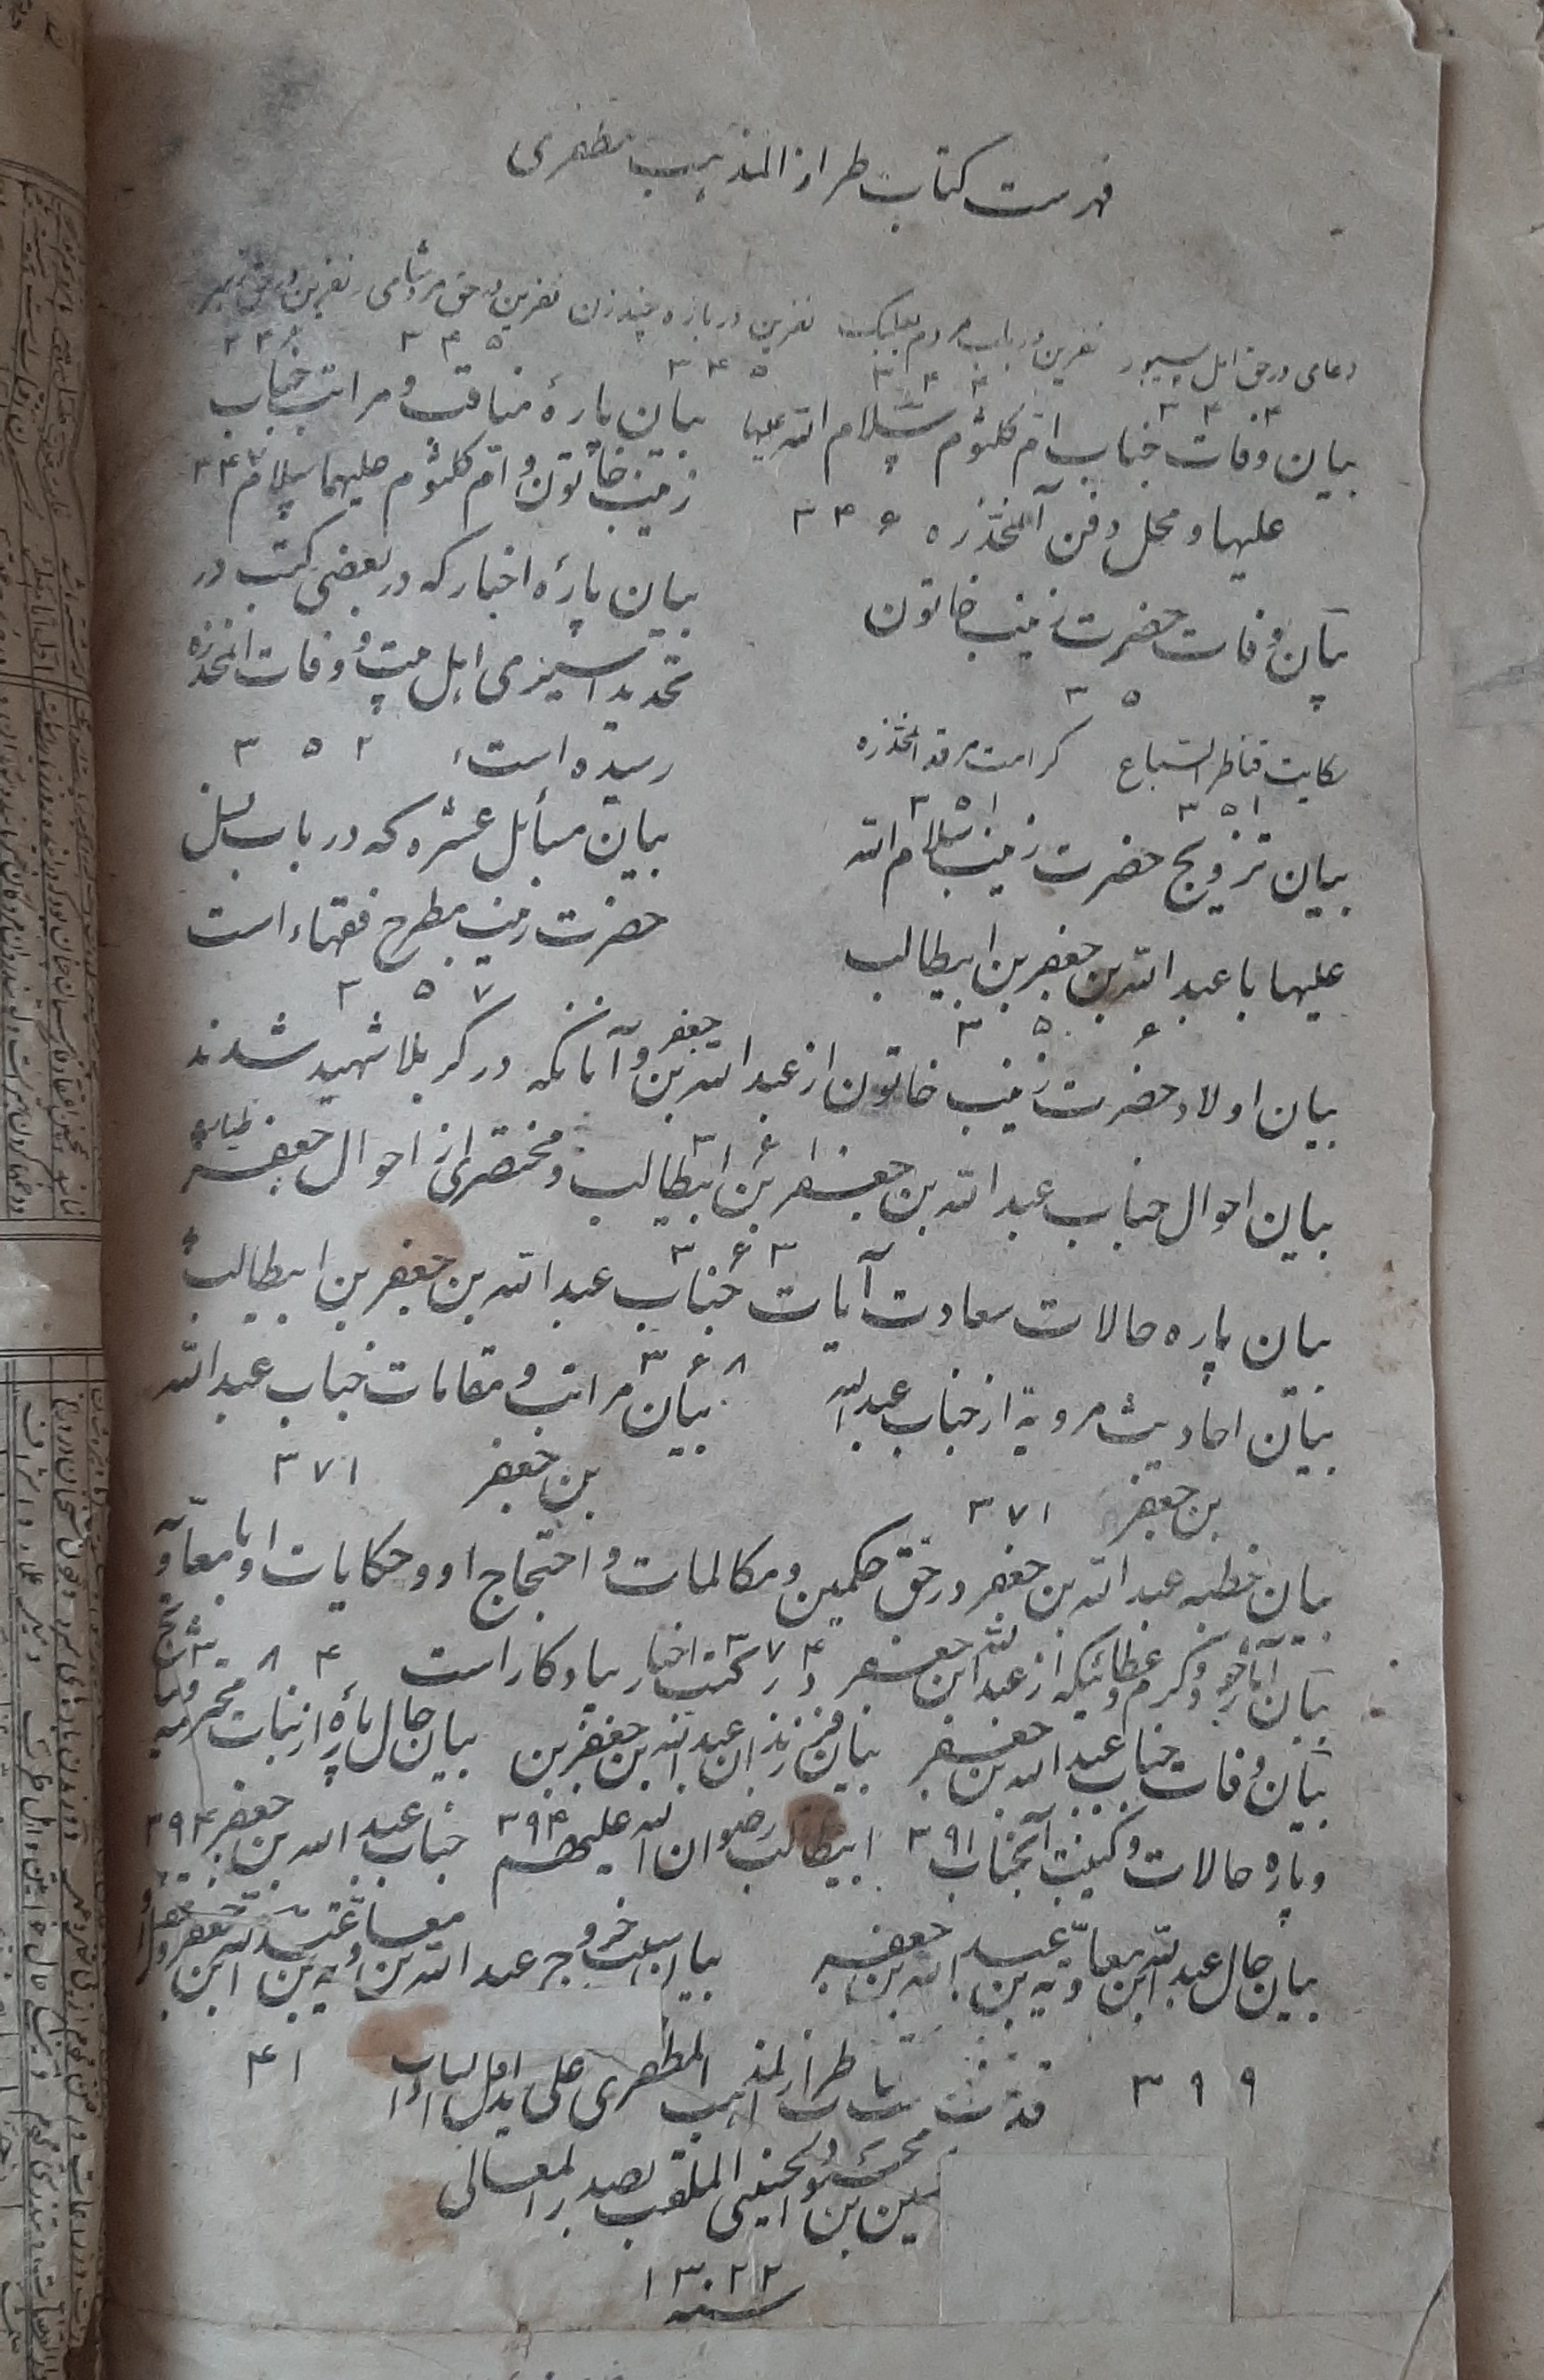 فهرست کتاب طراز المذهب مظفری
دعای در حق اهل سیبور نفرین در باب مردم بعلبک نفرین درباره چند زن نفرین در حق مرد شامی نفرین در حق
۳۴۴ ۳۴۴ ۳۴۵ ۳۴۵ ۳۴۶
بیان وفات جناب ام کلثوم سلام الله علیها
علیها و محل دفن آنمخدّره ۳۴۶
بیان پارهٔ مناقب و مراتب جناب
زینب خاتون و ام کلثوم علیهما سلام ۳۴۷
بیان وفات حضرت زینب خاتون
۳۵
بیان پارهٔ اخبار که در بعضی کتب در
تجدید اسیری اهل بیت و وفات آنمخدّره
رسیده است ۳۵۲
حکایت قناطر السباع کرامت مرقد آنمخدره
۳۵۱ ۳۵۱
بیان تزویج حضرت زینب سلام الله
علیها با عبد الله بن جعفر بن ابیطالب
۳۵۶
بیان مسائل عشره که در باب نسل
حضرت زینب مطرح فقهاء است
۳۵۷
بیان اولاد حضرت زینب خاتون از عبد الله بن جعفر و آنانکه در کربلا شهید شدند
۳۶۱
بیان احوال جناب عبد الله بن جعفر بن ابیطالب و مختصری از احوال جعفر طیار
۳۶۳
بیان پاره حالات سعادت آیات جناب عبد الله بن جعفر بن ابیطالب
۳۶۸
بیان احادیث مرویه از جناب عبد الله
بن جعفر ۳۷۱
بیان مراتب و مقامات جناب عبد الله
بن جعفر ۳۷۱
بیان خطبه عبد الله بن جعفر در حق حکمین و مکالمات و احتجاج او و حکایات او با معاویه
۳۷۴
بیان آثار جود و کرم و عطائیکه از عبد الله ابن جعفر در کتب اخبار بیادگار است ۳۸۴
بیان وفات جناب عبد الله بن جعفر
و پاره حالات و کیفیت آنجناب ۳۹۱
بیان فرزندان عبد الله بن جعفر بن
ابیطالب رضوان الله علیهم ۳۹۴
بیان حال پارهٔ از بنات محترمه
جناب عبد الله بن جعفر ۳۹۴
بیان حال عبد الله ابن معاویه بن عبد الله بن جعفر
۳۹۹
بیان سبب خروج عبد الله بن معاویه بن
۴۱
قد تمت کتاب طراز المذهب المظفری علی ید اقل
بن محمد الحسینی الملقب بصدر المعالی
سنه ۱۳۰۲۲